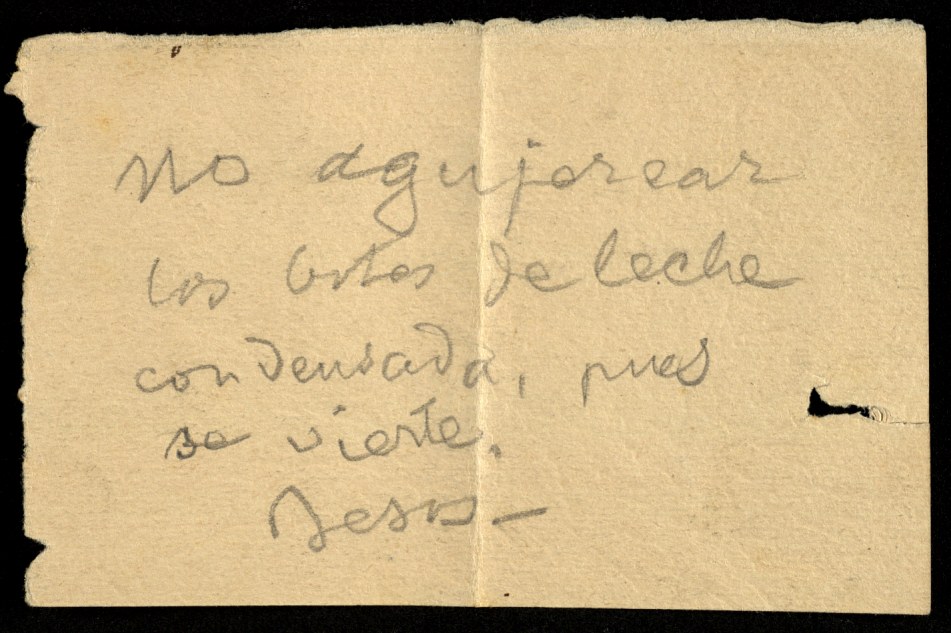 No agujerear
los botes de leche
condensada, pues
se vierte.
Besos—